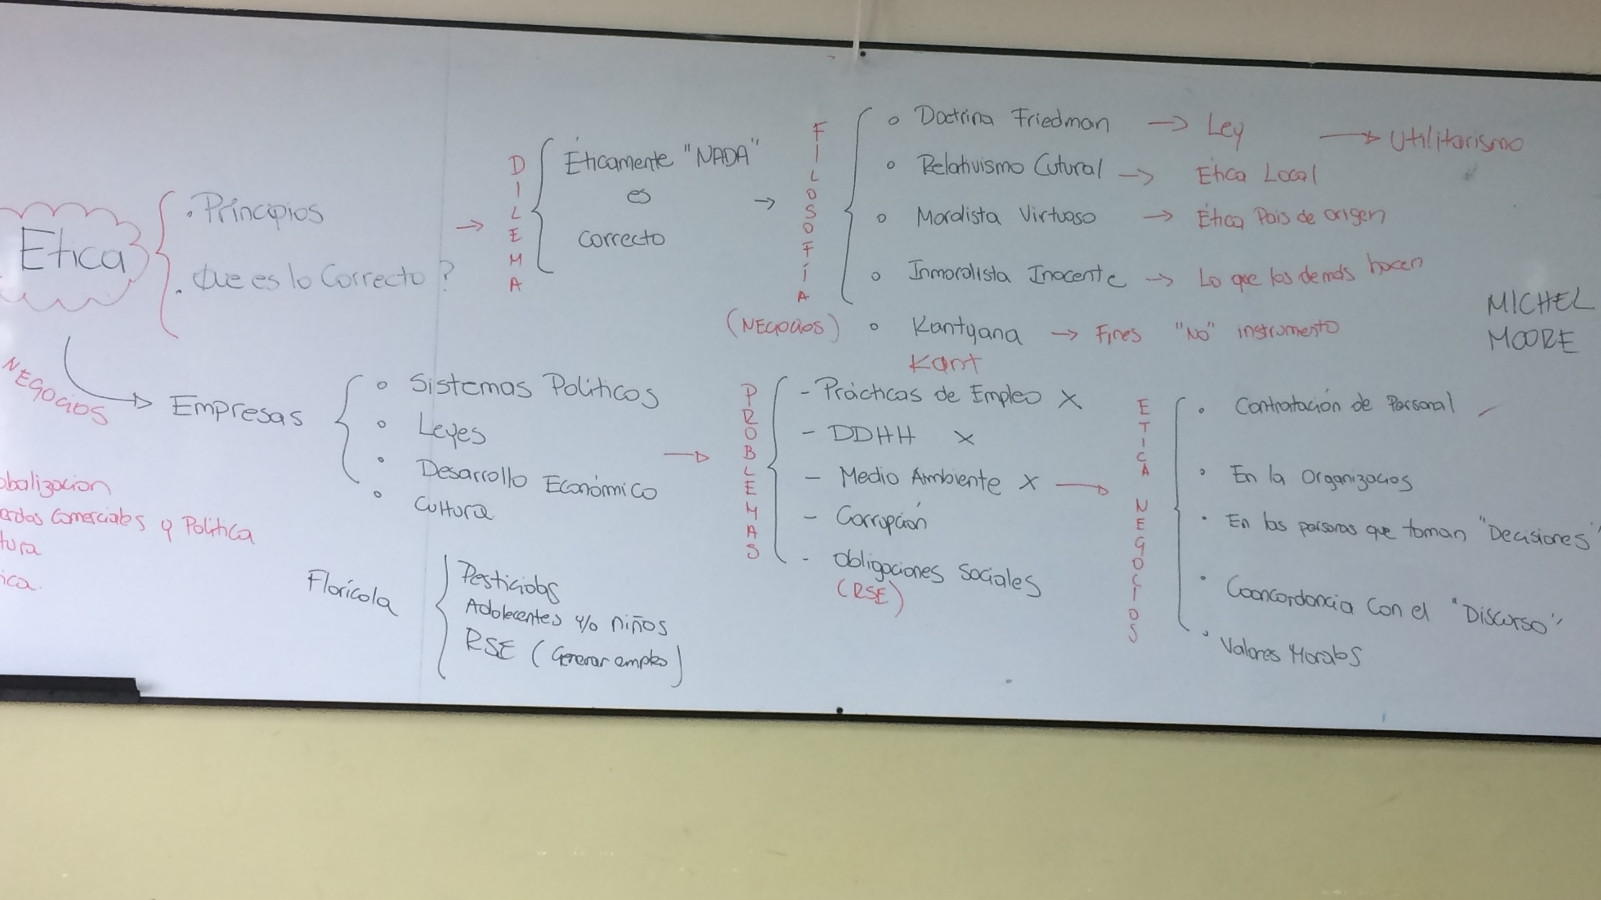 Etica
• Principios
• Que es lo Correcto?
DILEMA
Éticamente "NADA"
es
correcto
FILOSOFÍA
(NEGOCIOS)
• Doctrina Friedman → Ley → Utilitarismo
• Relativismo Cutural → Etica Local
• Moralista Virtuoso → Ética Pais de origen
• Inmoralista Inocente → Lo que los demás hacen
• Kantyana → Fines "NO" instrumento
Kant
MICHEL
MOORE
NEGOCIOS
Empresas
• Sistemas Politicos
• Leyes
• Desarrollo Económico
• Cultura
PROBLEMAS
- Prácticas de Empleo X
- DDHH X
- Medio Ambiente X
- Corrupción
- Obligaciones Sociales
(RSE)
ETICA NEGOCIOS
• Contratación de Personal
• En la Organizacios
• En las personas que toman "Decisiones"
• Cooncordancia con el "Discurso"
• Valores Morales
obalizacion
Comerciales y Politica
tura
ica.
Florícola
Pesticidas
Adolecentes y/o niños
RSE (Generar empleo)